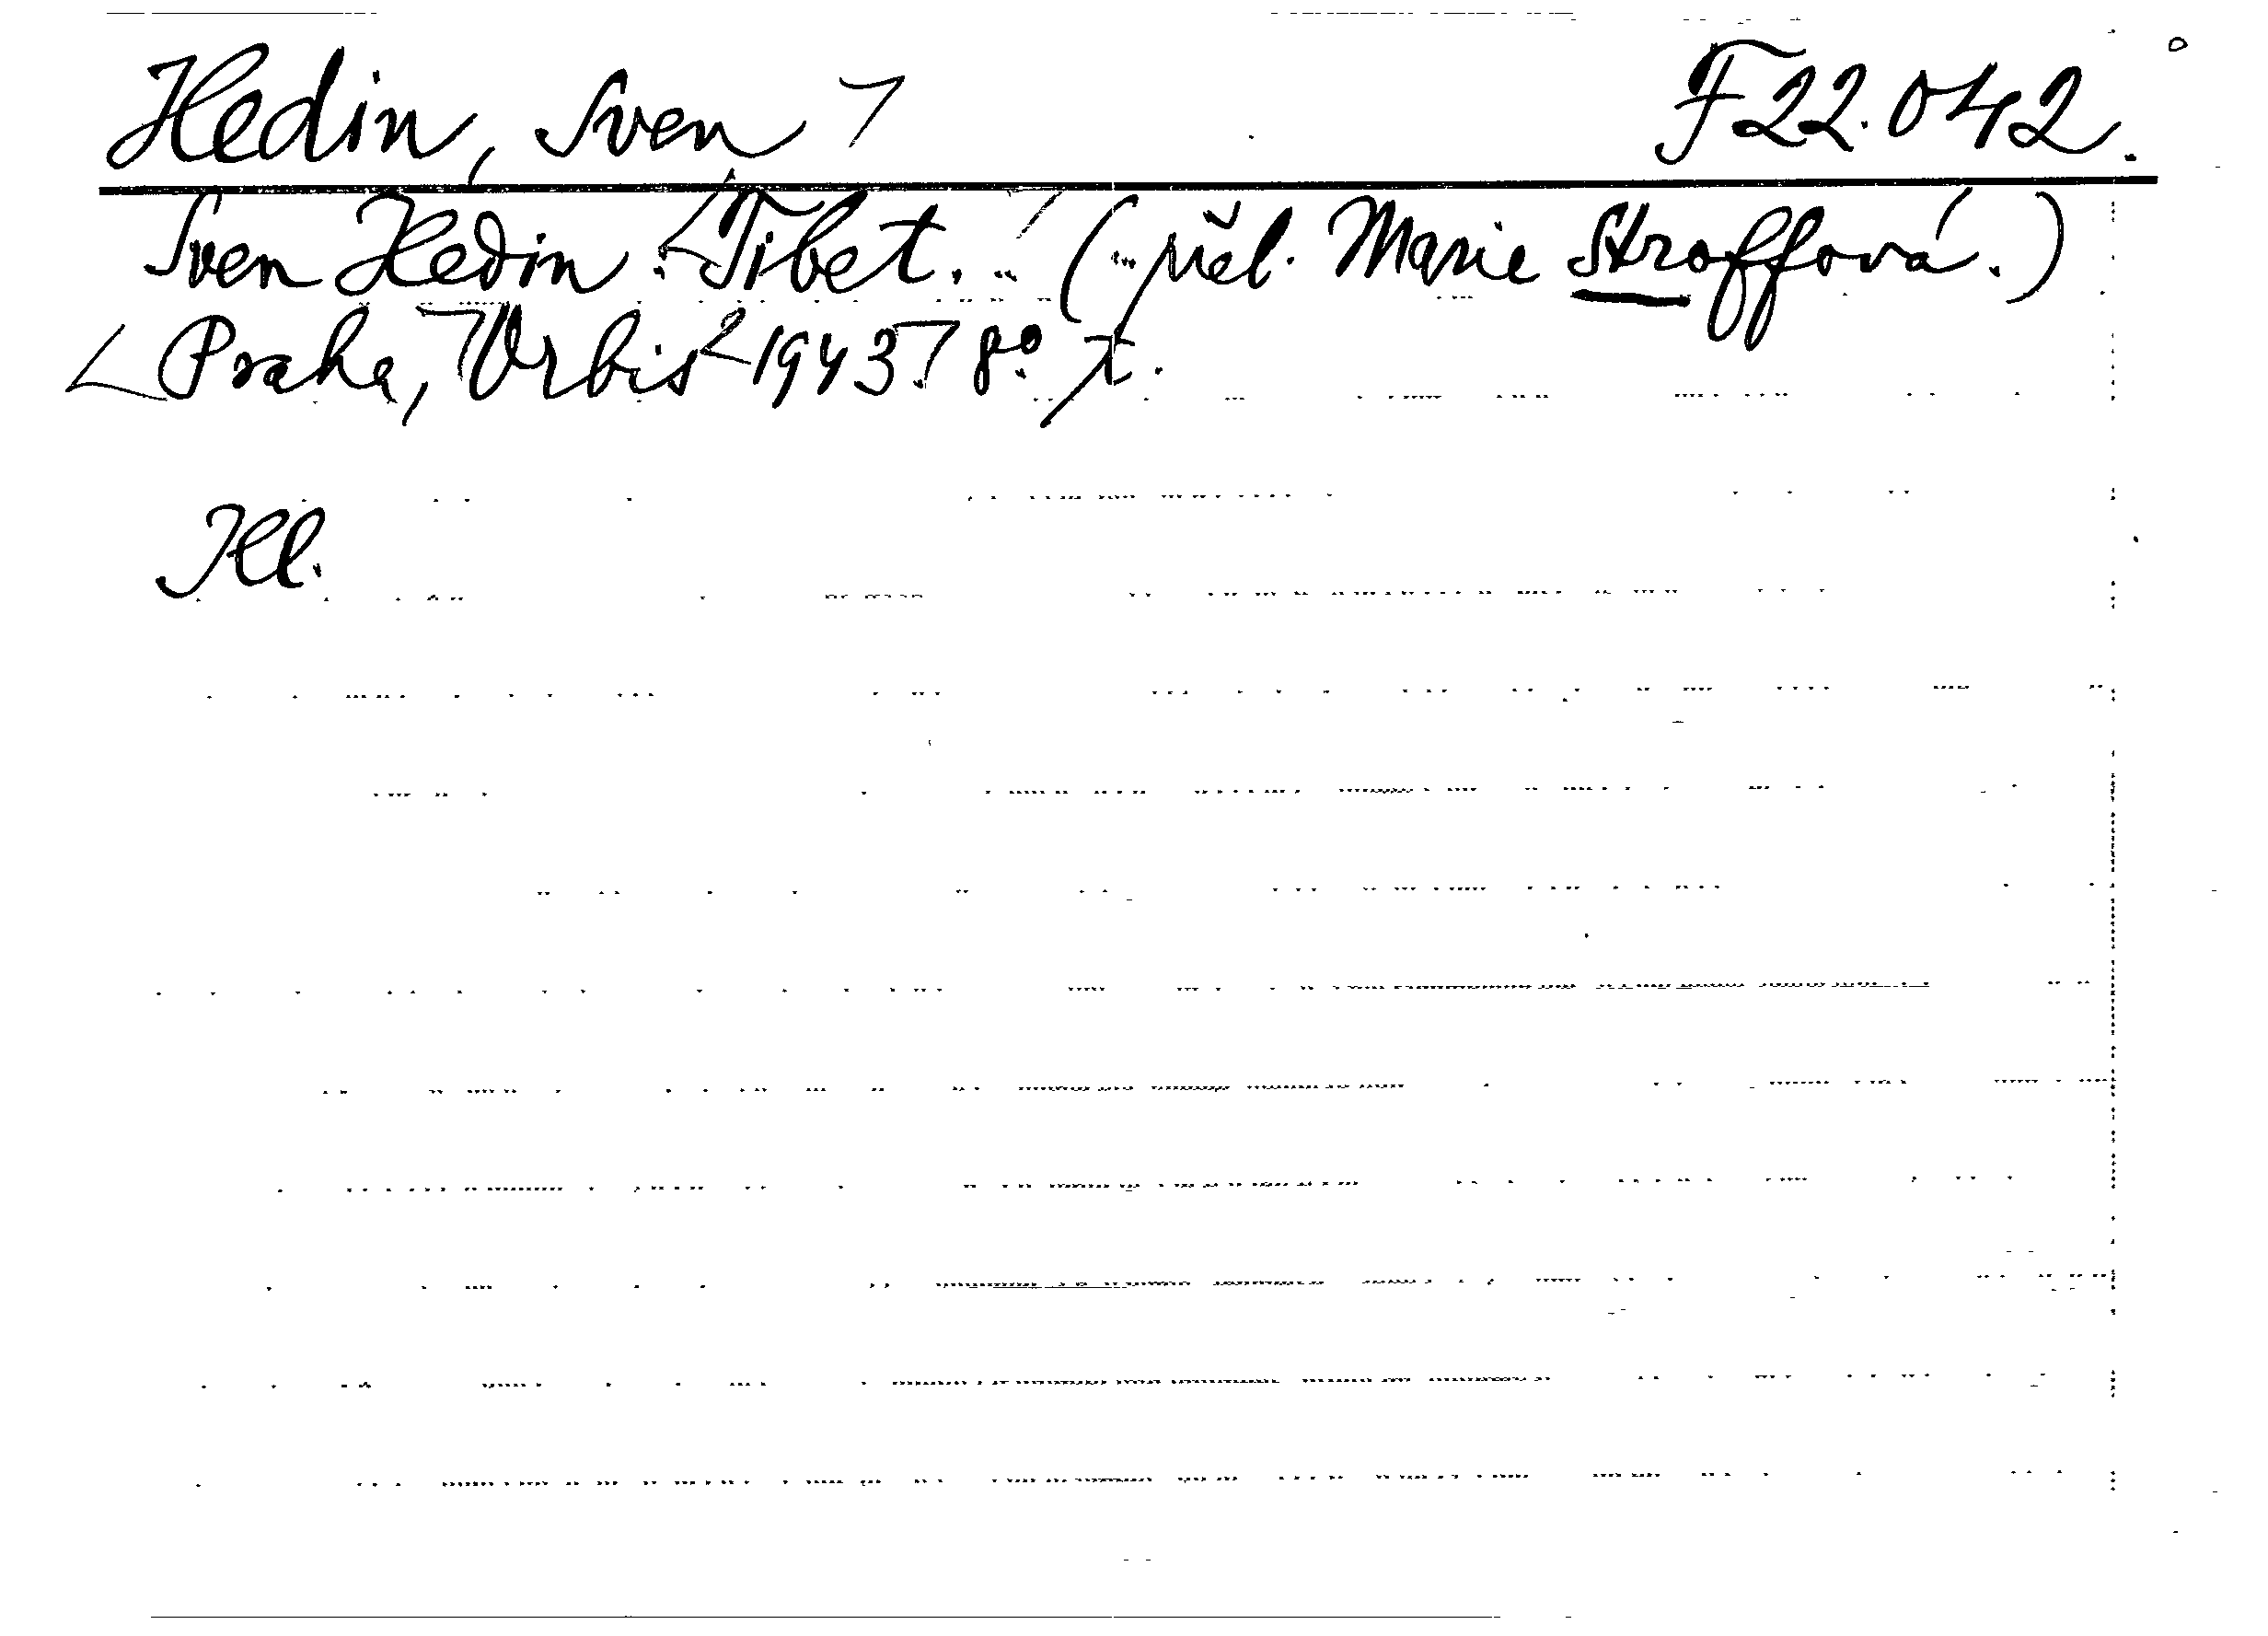 Hedin, Sven F 22.042.
Sven Hedin: Tibet. ... (... přel. Marie Stroffová.)
Praha, Orbis 1943. 8°.
Kl.